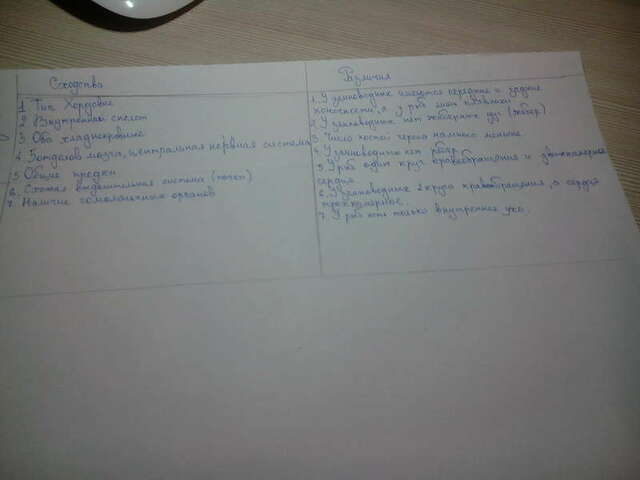 Сходства
1. Тип Хордовые
2. Внутренний скелет
3. Оба хладнокровные
4. 5 отделов мозга, центральная нервная система
5. Общие предки
6. Схожая выделительная система (почки)
7. Наличие гомологичных органов
Различия
1. У земноводных имеются передние и задние
конечности, а у рыб плавники
2. У земноводных нет жаберных дуг (жабер)
3. Число костей черепа намного меньше
4. У земноводных нет рёбер
5. У рыб один круг кровообращения и двухкамерное
сердце
6. У земноводных 2 круга кровообращения, а сердце
трехкамерное.
7. У рыб есть только внутреннее ухо.